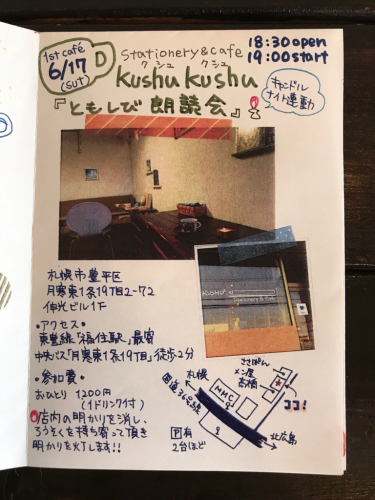 1st café
6/17
(SUT)
stationery&cafe
クシュ クシュ
kushu kushu
『ともしび朗読会』
18:30open
19:00start
キャンドル
ナイト連動
札幌市豊平区
月寒東1条19丁目2-72
伸光ビル1F
・アクセス・
東豊線「福住駅」最寄
中央バス「月寒東1条19丁目」徒歩2分
・参加費・
おひとり 1200円
(1ドリンク付)
店内の明かりを消し、
ろうそくを持ち寄って頂き
明かりを灯します!!
KUSHU²
Stationery & Cafe
札幌
国道36号線
HMC
ささぱん
メン屋
高橋
ココ!
北広島
P有
2台ほど